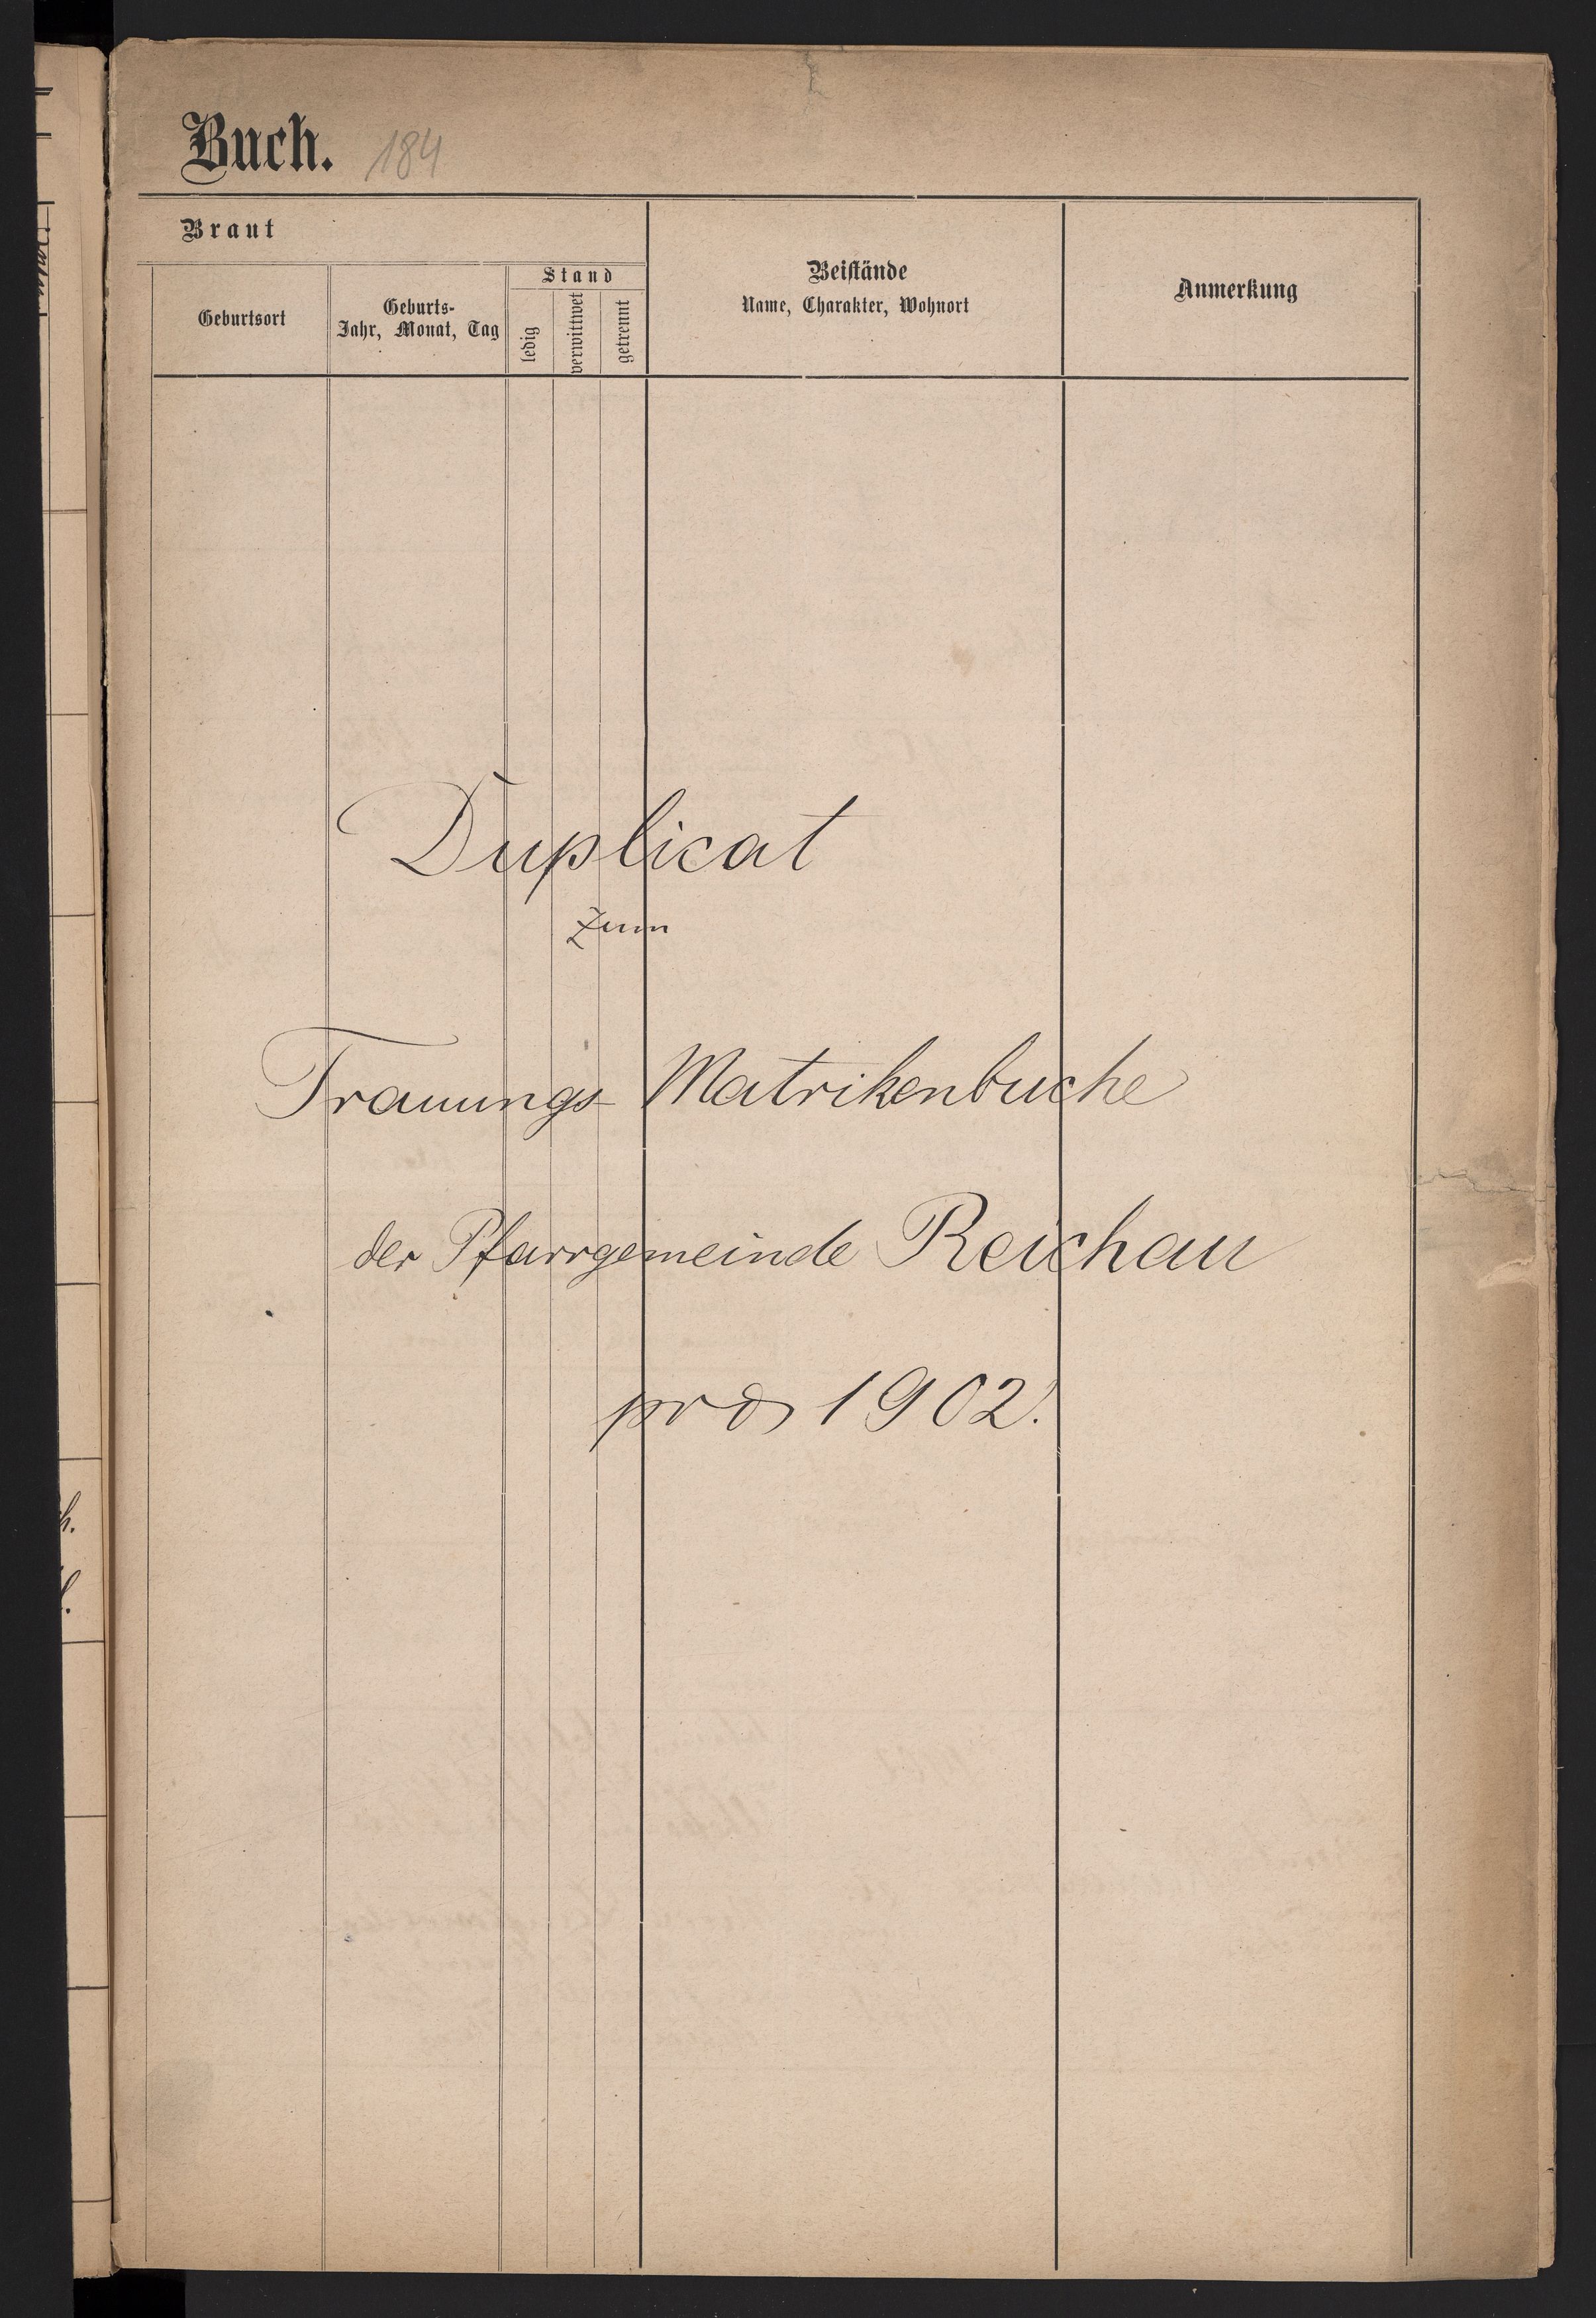 Buch. 184
Braut
Geburtsort
Geburts-
Jahr, Monat, Tag
Stand
ledig
verwittwet
getrennt
Beistände
Name, Charakter, Wohnort
Anmerkung
Duplicat
zum
Trauungs- Matrikenbuche
der Pfarrgemeinde Reichau
pro 1902.